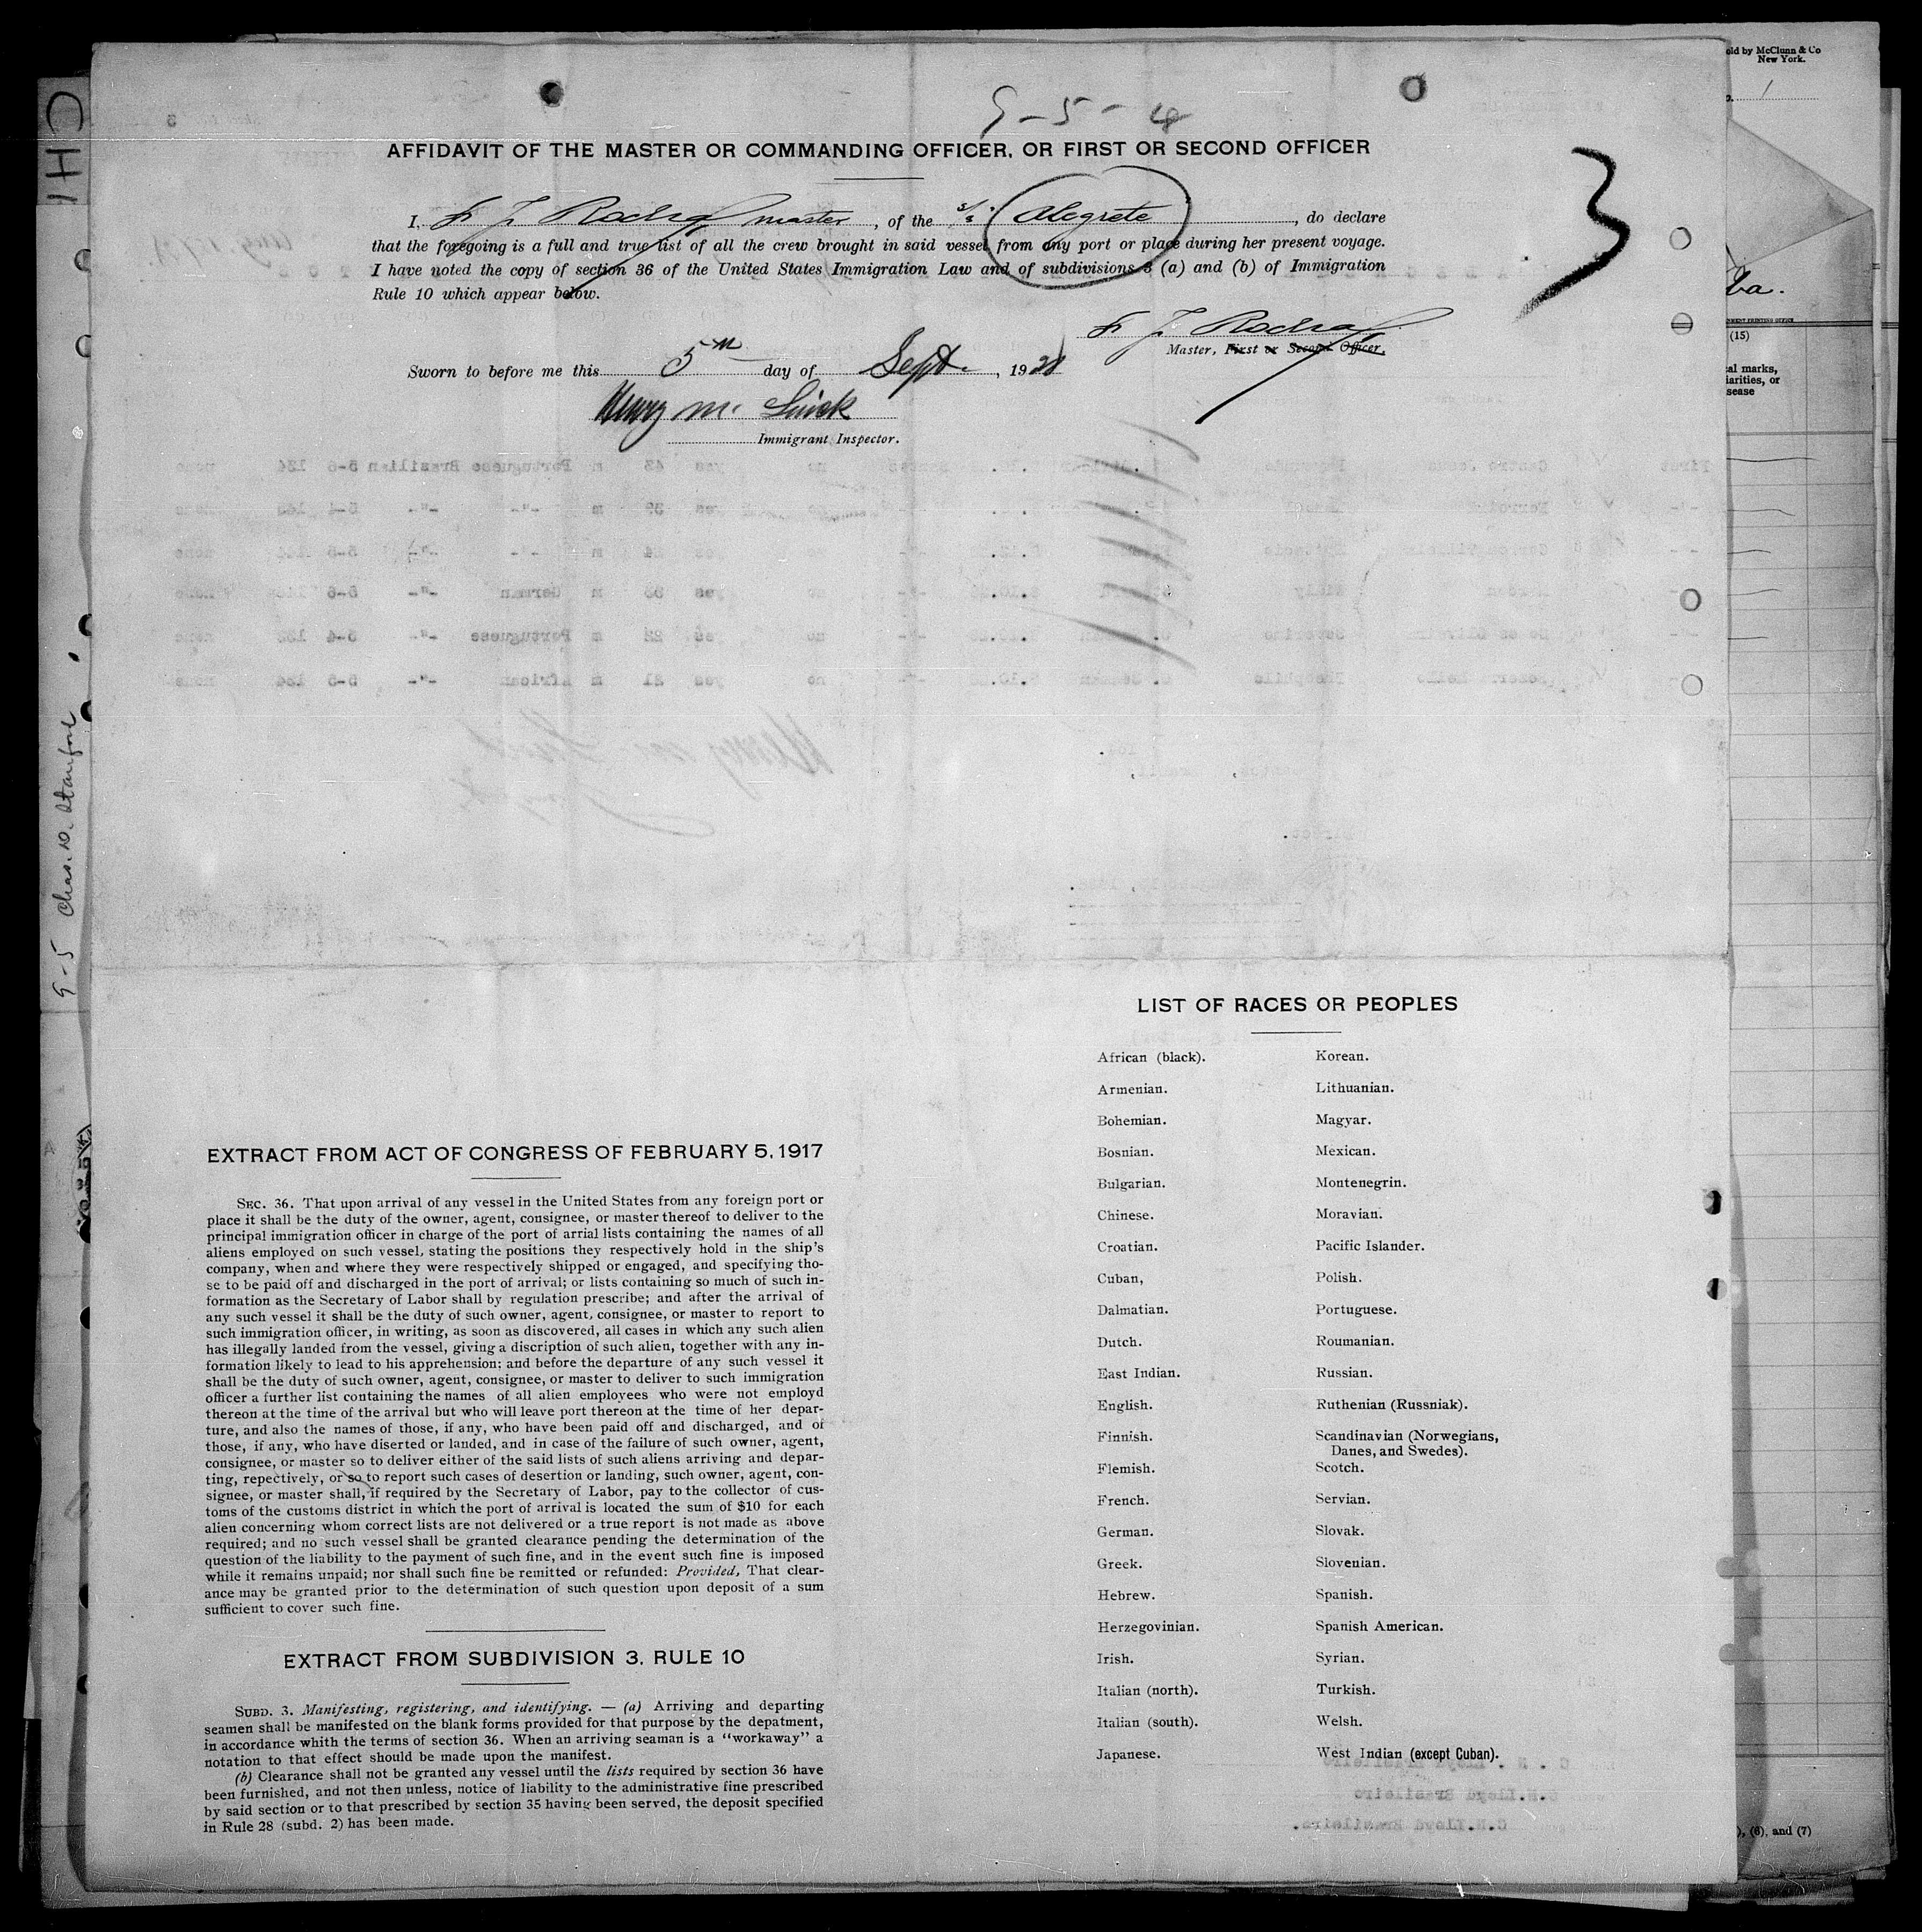 old by McClunn & Co
New York.
9-5-4
AFFIDAVIT OF THE MASTER OR COMMANDING OFFICER, OR FIRST OR SECOND OFFICER
3
I, F J Rocha master, of the s/s Alegrete, do declare
that the foregoing is a full and true list of all the crew brought in said vessel from any port or place during her present voyage.
I have noted the copy of section 36 of the United States Immigration Law and of subdivisions 3 (a) and (b) of Immigration
Rule 10 which appear below.
F J Rocha
Master, First or Second Officer.
Sworn to before me this 5th day of Sept., 1928
Henry M.
Immigrant Inspector.
(15)
al marks,
iarities, or
sease
9-5 Chas. W. Stanford
EXTRACT FROM ACT OF CONGRESS OF FEBRUARY 5, 1917
SEC. 36. That upon arrival of any vessel in the United States from any foreign port or
place it shall be the duty of the owner, agent, consignee, or master thereof to deliver to the
principal immigration officer in charge of the port of arrial lists containing the names of all
aliens employed on such vessel, stating the positions they respectively hold in the ship's
company, when and where they were respectively shipped or engaged, and specifying tho-
se to be paid off and discharged in the port of arrival; or lists containing so much of such in-
formation as the Secretary of Labor shall by regulation prescribe; and after the arrival of
any such vessel it shall be the duty of such owner, agent, consignee, or master to report to
such immigration officer, in writing, as soon as discovered, all cases in which any such alien
has illegally landed from the vessel, giving a discription of such alien, together with any in-
formation likely to lead to his apprehension; and before the departure of any such vessel it
shall be the duty of such owner, agent, consignee, or master to deliver to such immigration
officer a further list containing the names of all alien employees who were not employd
thereon at the time of the arrival but who will leave port thereon at the time of her depar-
ture, and also the names of those, if any, who have been paid off and discharged, and of
those, if any, who have diserted or landed, and in case of the failure of such owner, agent,
consignee, or master so to deliver either of the said lists of such aliens arriving and depar-
ting, repectively, or so to report such cases of desertion or landing, such owner, agent, con-
signee, or master shall, if required by the Secretary of Labor, pay to the collector of cus-
toms of the customs district in which the port of arrival is located the sum of $10 for each
alien concerning whom correct lists are not delivered or a true report is not made as above
required; and no such vessel shall be granted clearance pending the determination of the
question of the liability to the payment of such fine, and in the event such fine is imposed
while it remains unpaid; nor shall such fine be remitted or refunded: Provided, That clear-
ance may be granted prior to the determination of such question upon deposit of a sum
sufficient to cover such fine.
EXTRACT FROM SUBDIVISION 3, RULE 10
SUBD. 3. Manifesting, registering, and identifying. — (a) Arriving and departing
seamen shall be manifested on the blank forms provided for that purpose by the depatment,
in accordance whith the terms of section 36. When an arriving seaman is a "workaway" a
notation to that effect should be made upon the manifest.
(b) Clearance shall not be granted any vessel until the lists required by section 36 have
been furnished, and not then unless, notice of liability to the administrative fine prescribed
by said section or to that prescribed by section 35 having been served, the deposit specified
in Rule 28 (subd. 2) has been made.
LIST OF RACES OR PEOPLES
African (black).
Armenian.
Bohemian.
Bosnian.
Bulgarian.
Chinese.
Croatian.
Cuban,
Dalmatian.
Dutch.
East Indian.
English.
Finnish.
Flemish.
French.
German.
Greek.
Hebrew.
Herzegovinian.
Irish.
Italian (north).
Italian (south).
Japanese.
Korean.
Lithuanian.
Magyar.
Mexican.
Montenegrin.
Moravian.
Pacific Islander.
Polish.
Portuguese.
Roumanian.
Russian.
Ruthenian (Russniak).
Scandinavian (Norwegians,
Danes, and Swedes).
Scotch.
Servian.
Slovak.
Slovenian.
Spanish.
Spanish American.
Syrian.
Turkish.
Welsh.
West Indian (except Cuban).
), (6), and (7)